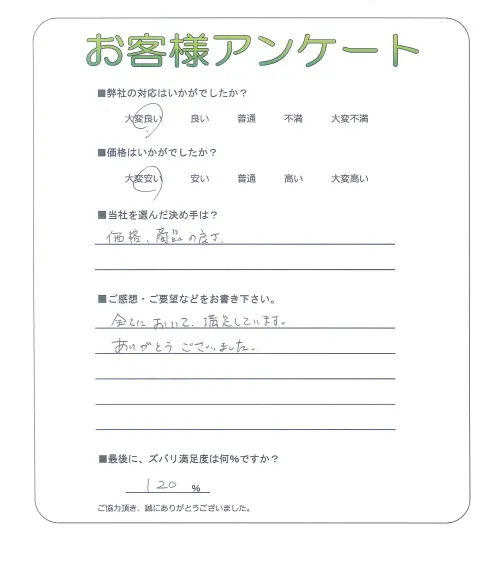 お客様アンケート
■弊社の対応はいかがでしたか？
大変良い 良い 普通 不満 大変不満
■価格はいかがでしたか？
大変安い 安い 普通 高い 大変高い
■当社を選んだ決め手は？
価格、商品の良さ、
■ご感想・ご要望などをお書き下さい。
全てにおいて、満足しています。
ありがとうございました。
■最後に、ズバリ満足度は何%ですか？
120 %
ご協力頂き、誠にありがとうございました。